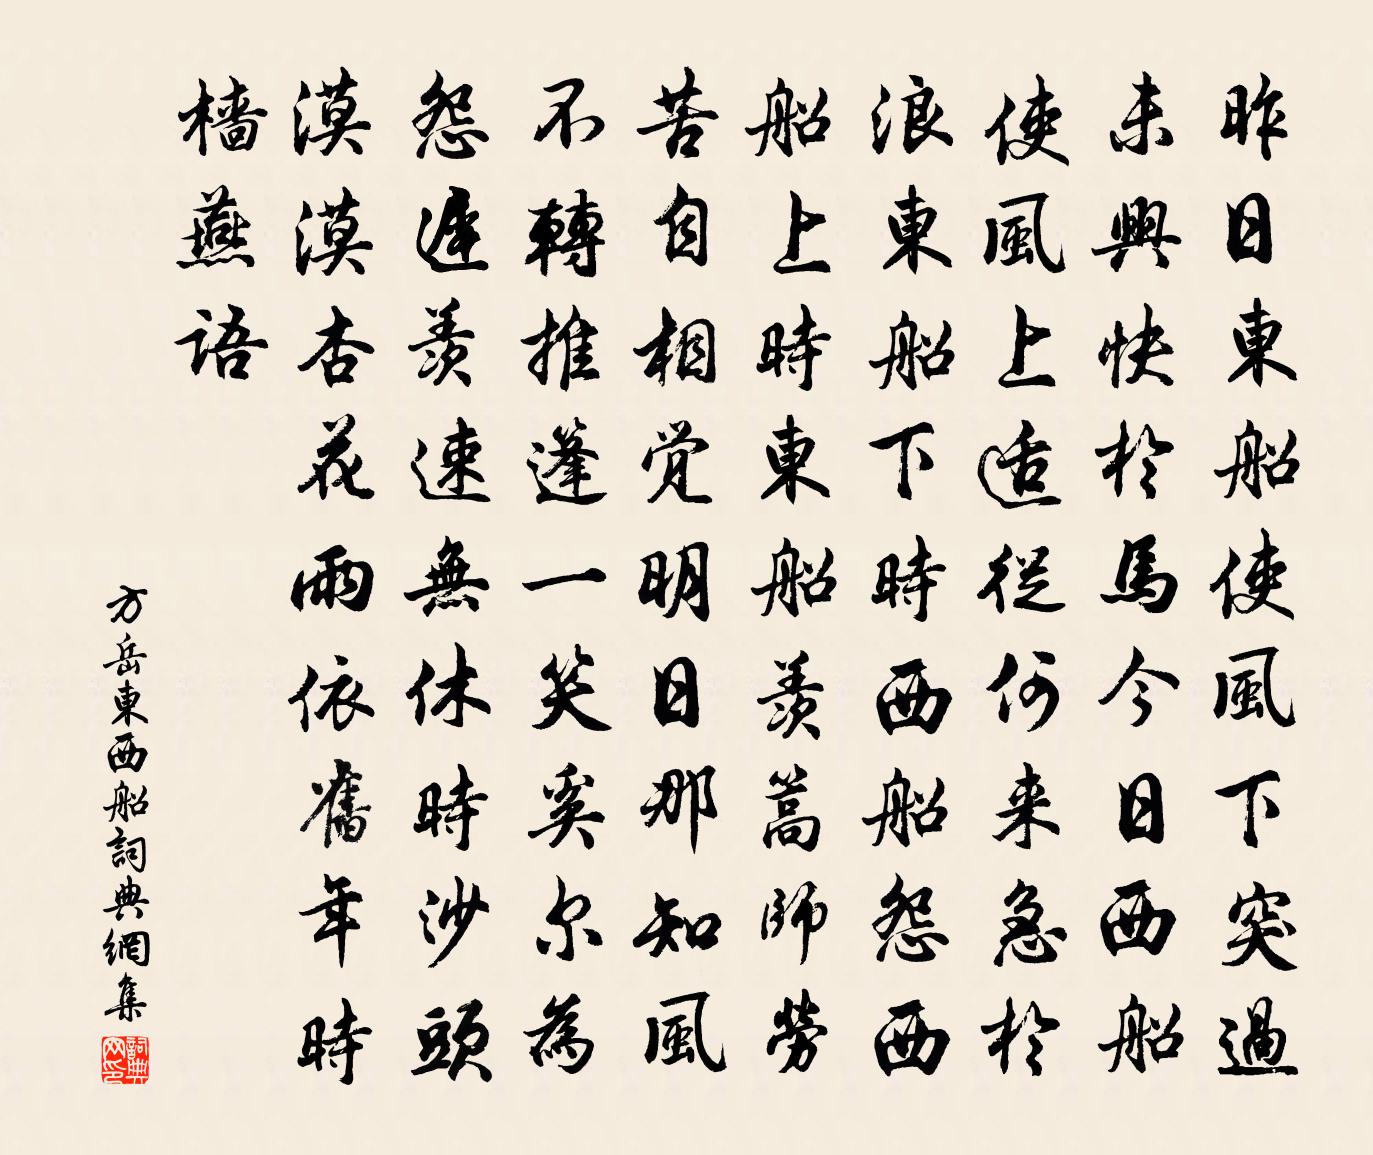 昨日東船使風下突過
未興快於馬今日西船
使風上适從何来急於
浪東船下時西船怨西
船上時東船羨篙師勞
苦自相觉明日那知風
不轉推蓬一笑奚尔為
怨遲羨速無休時沙頭
漠漠杏花雨依舊年時
檣燕語
方岳東西船詞典網集
詞典网印